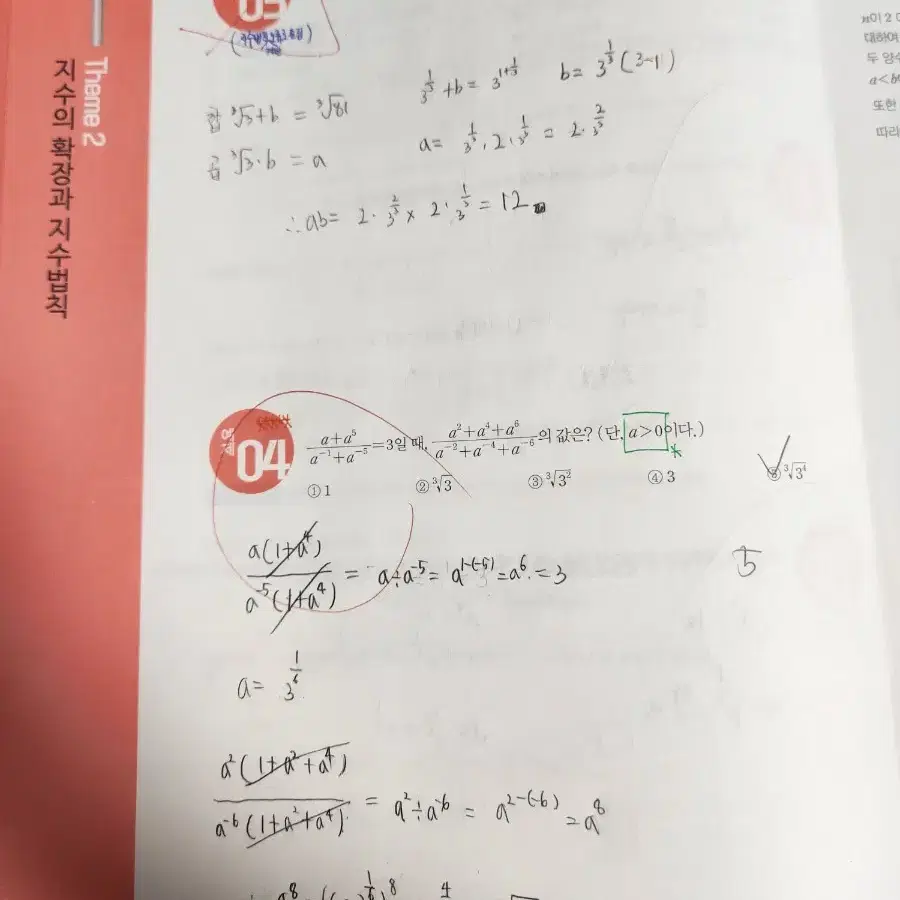 03
Theme 2
지수의 확장과 지수법칙
합 ³√3+b = ³√81
3^(1/3)+b = 3^(1+1/3) b = 3^(1/3)(3-1)
곱 ³√3·b = a
a = 3^(1/3)·2·3^(1/3) = 2·3^(2/3)
∴ab = 2·3^(2/3) × 2·3^(1/3) = 12
예제
04
(a+a⁵)/(a⁻¹+a⁻⁵)=3일 때, (a²+a⁴+a⁶)/(a⁻²+a⁻⁴+a⁻⁶)의 값은? (단, a>0이다.)
① 1 ② ³√3 ③ ³√3² ④ 3 ⑤ ³√3⁴
a(1+a⁴)/a⁻⁵(1+a⁴) = a÷a⁻⁵ = a^(1-(-5)) = a⁶ = 3
5
a = 3^(1/6)
a²(1+a²+a⁴)/a⁻⁶(1+a²+a⁴) = a²÷a⁻⁶ = a^(2-(-6)) = a⁸
두 양수
또한